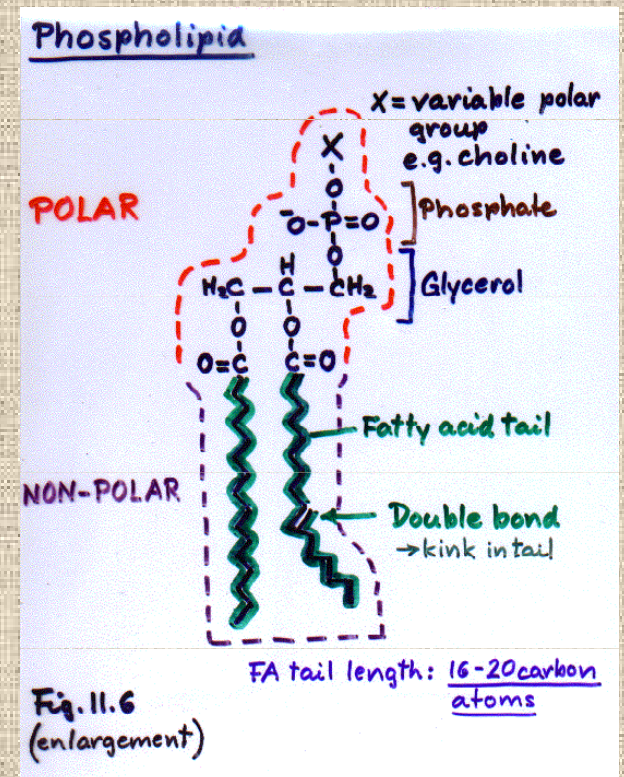 Phospholipid
X = variable polar
group
e.g. choline
X
O
POLAR
Phosphate
⁻O-P=O
O
H
H₂C - C - CH₂
Glycerol
O O
O=C C=O
Fatty acid tail
NON-POLAR
Double bond
→kink in tail
FA tail length: 16-20 carbon
atoms
Fig. 11.6
(enlargement)